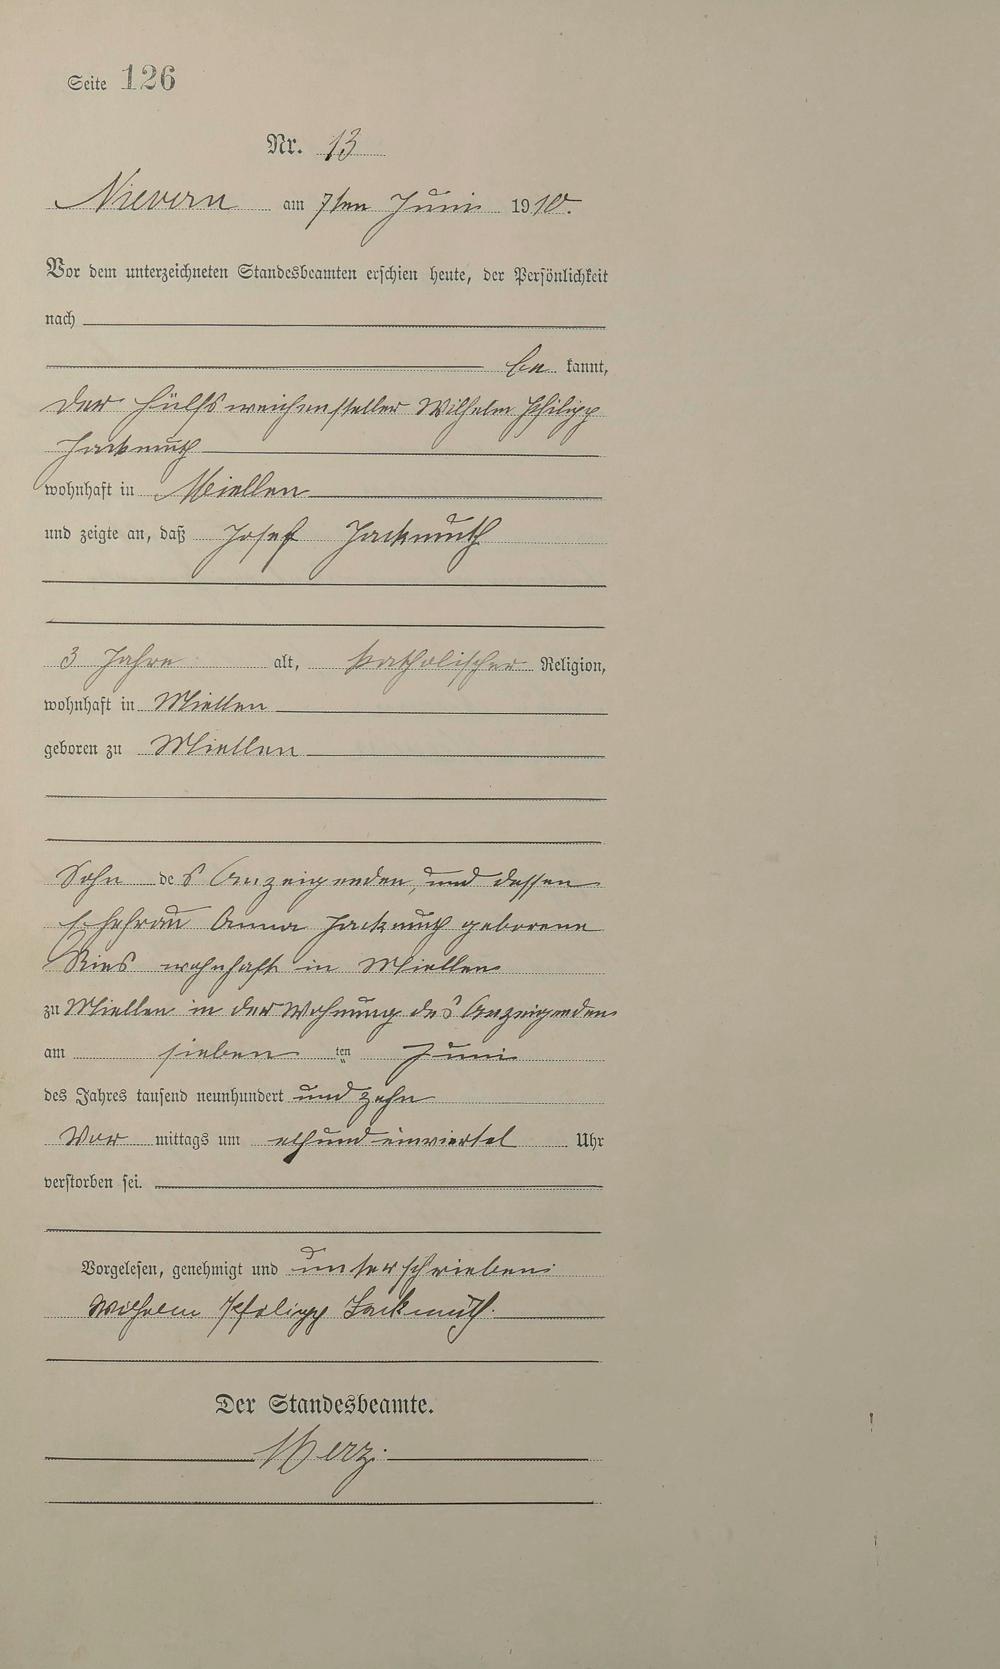 Seite 126
Nr. 13
Nievern am 7ten Juni 1910.
Vor dem unterzeichneten Standesbeamten erschien heute, der Persönlichkeit
nach
be kannt,
der Hülfsweichensteller Wilhelm Philipp
Jackmuth
wohnhaft in Miellen
und zeigte an, daß Josef Jackmuth
3 Jahre alt, katholischer Religion,
wohnhaft in Miellen
geboren zu Miellen
Sohn des Anzeigenden, und dessen
Ehefrau Anna Jackmuth geborene
Ries wohnhaft in Miellen
zu Miellen in der Wohnung des Anzeigenden
am sieben ten Juni
des Jahres tausend neunhundert und zehn
Vor mittags um elf und einviertel Uhr
verstorben sei.
Vorgelesen, genehmigt und unterschrieben
Wilhelm Philipp Jackmuth.
Der Standesbeamte.
Merz.